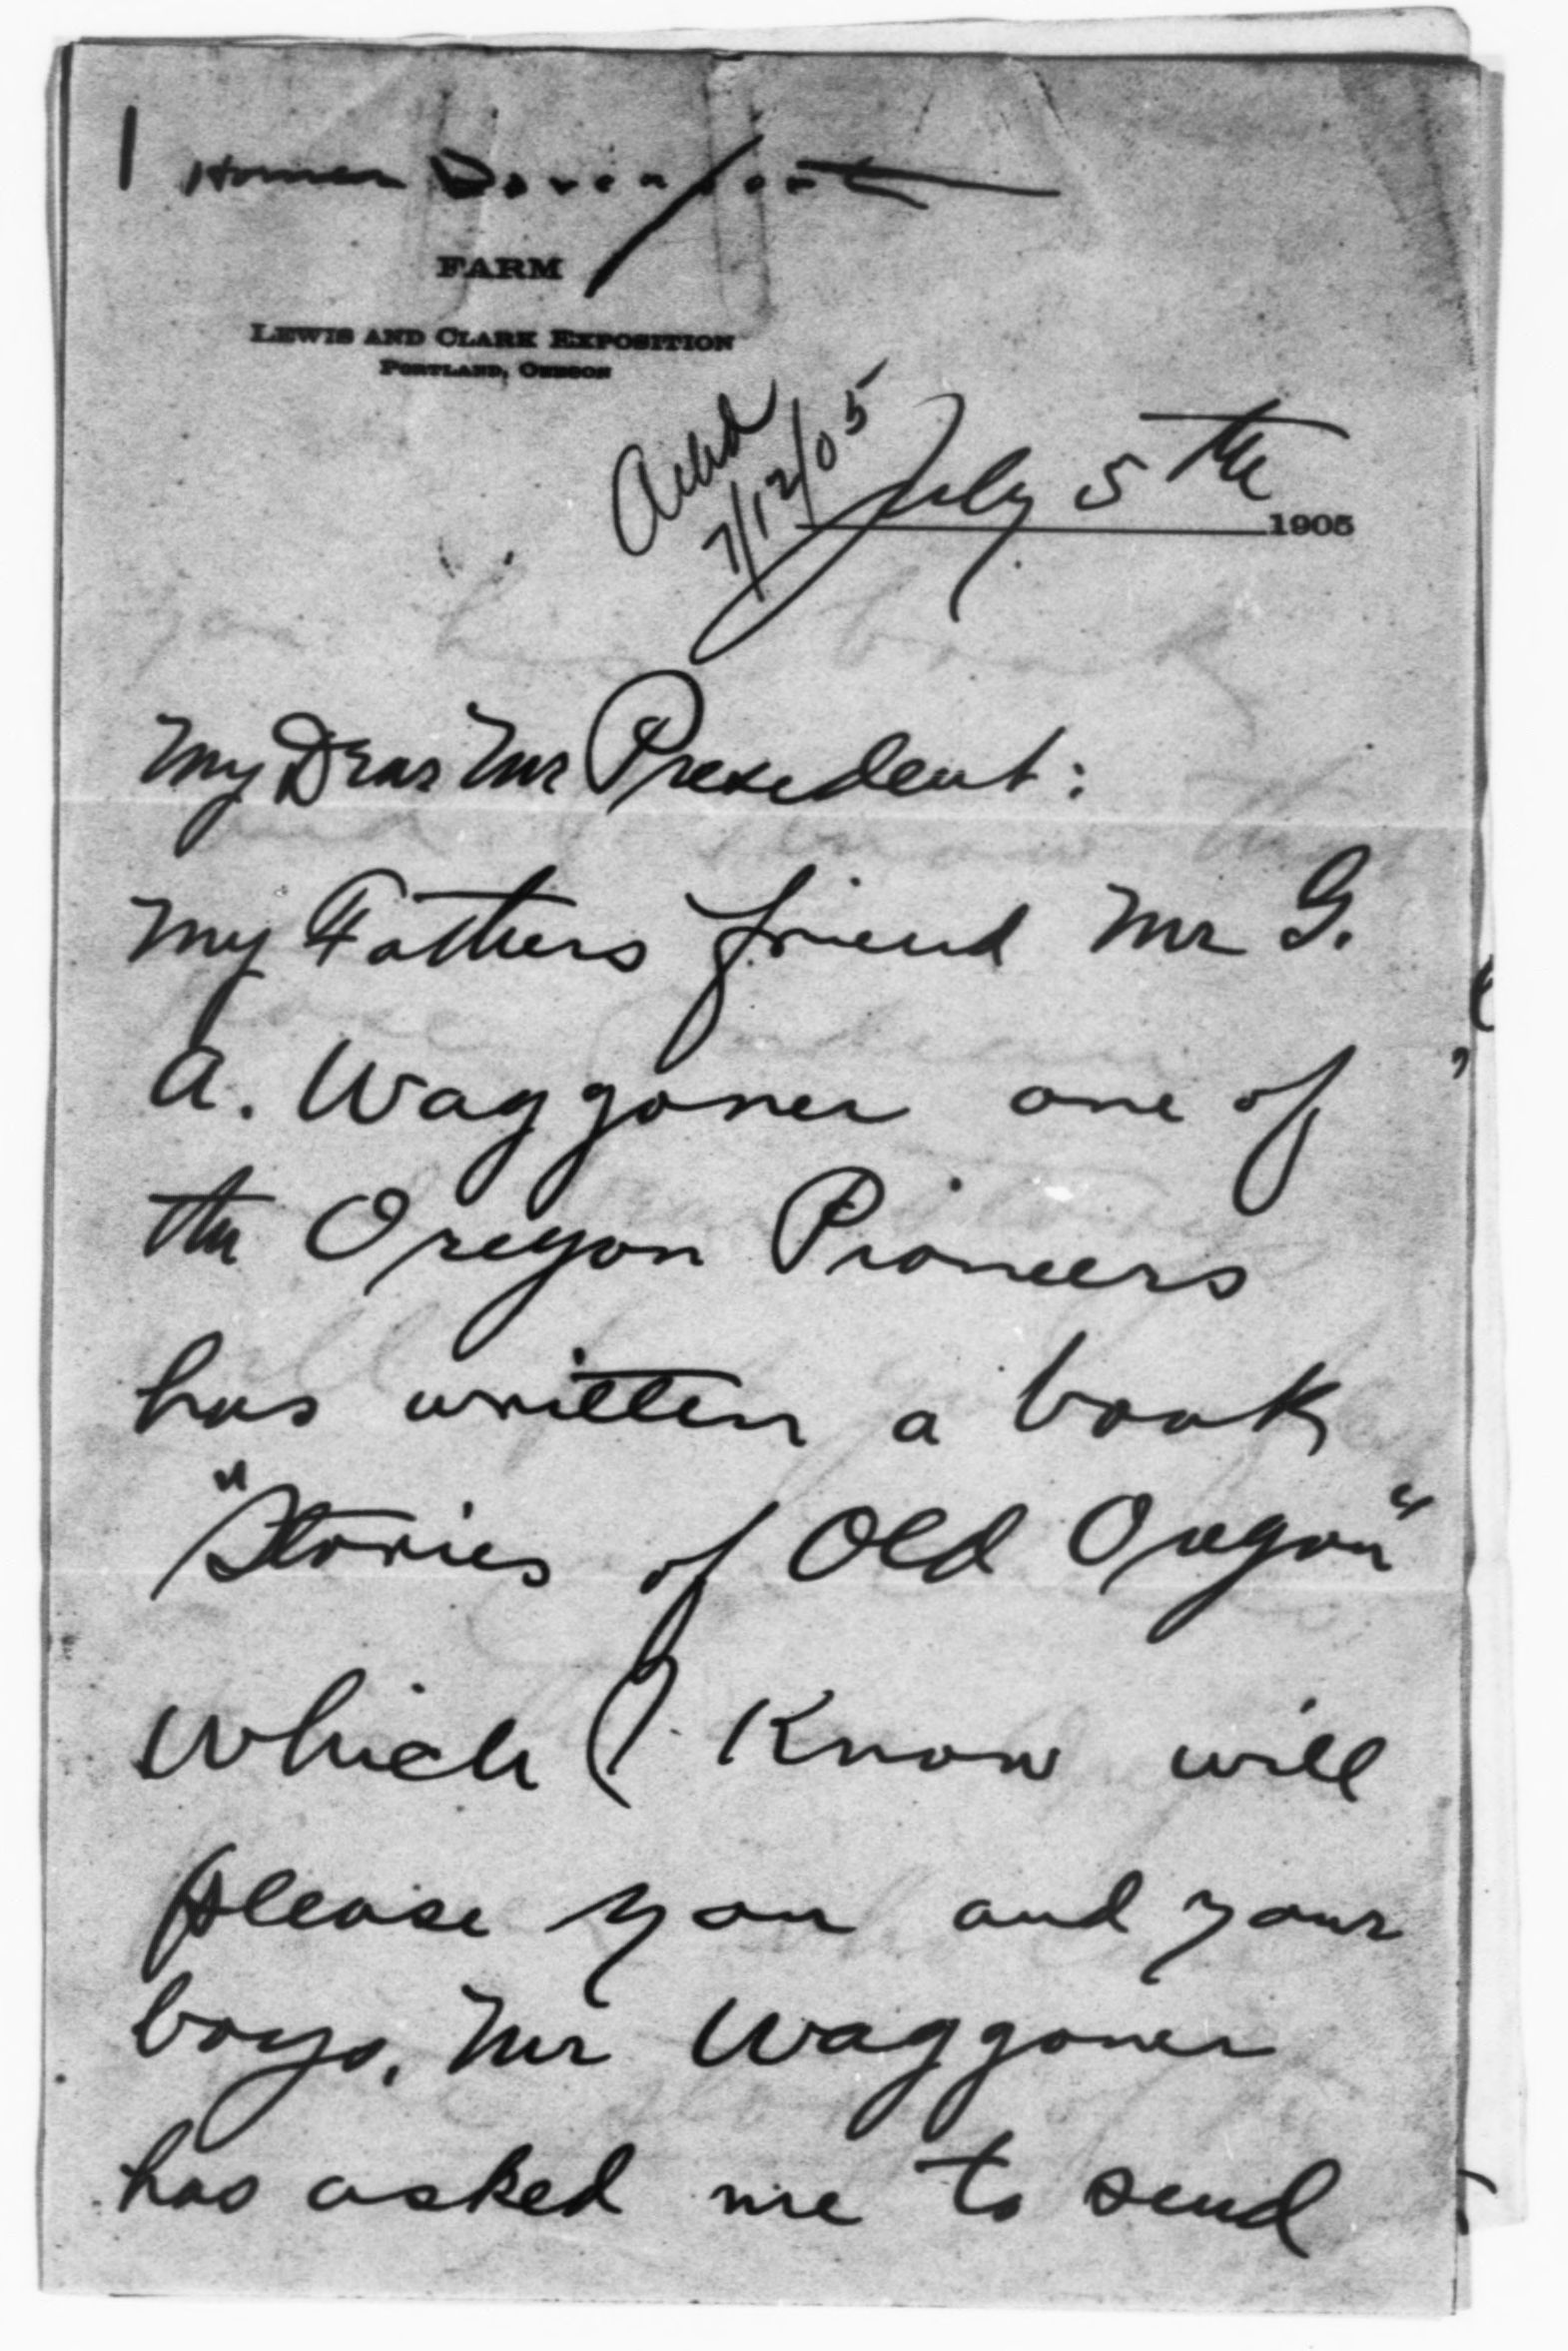 1 Homer Davenport
FARM
LEWIS AND CLARK EXPOSITION
PORTLAND, OREGON
Ackd
7/12/05
July 5th 1905
My Dear Mr President:
My Fathers friend Mr G.
A. Waggoner one of
the Oregon Pioneers
has written a book
"Stories of Old Oregon"
which I Know will
please you and your
boys. Mr Waggoner
has asked me to send